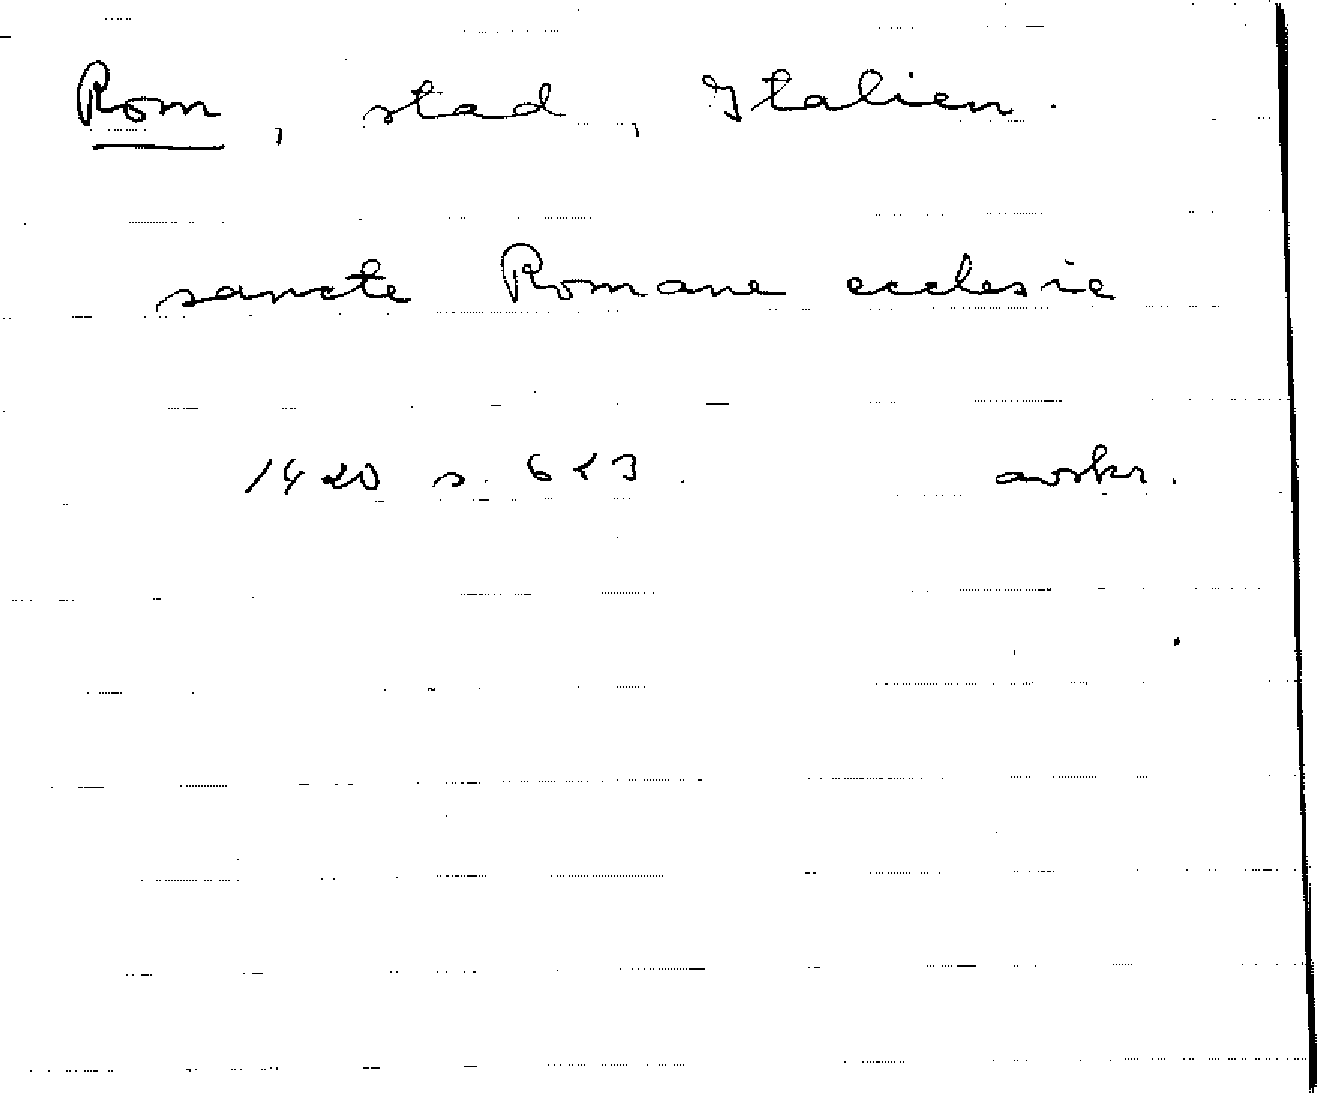 Rom, stad, Italien.
sancte Romane ecclesie
1420 s. 623. avskr.